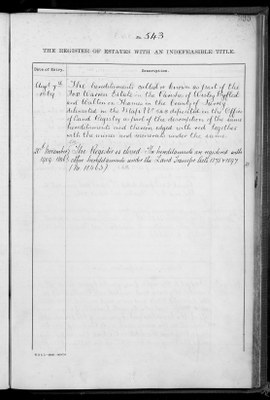 543
THE REGISTER OF ESTATES WITH AN INDEFEASIBLE TITLE.
Date of Entry.
Description.
The hereditaments called or known as part of the
Fox Warren Estate in the Parishes of Wisley Byfleet
and Walton on Thames in the County of Surrey
delineated in the Map No deposited in the Office
of Land Registry as part of the description of the same
hereditaments and thereon edged with red together
with the mines and minerals under the same.
November
The Register is closed. The hereditaments are registered with
other hereditaments under the Land Transfer Acts 1875 & 1897